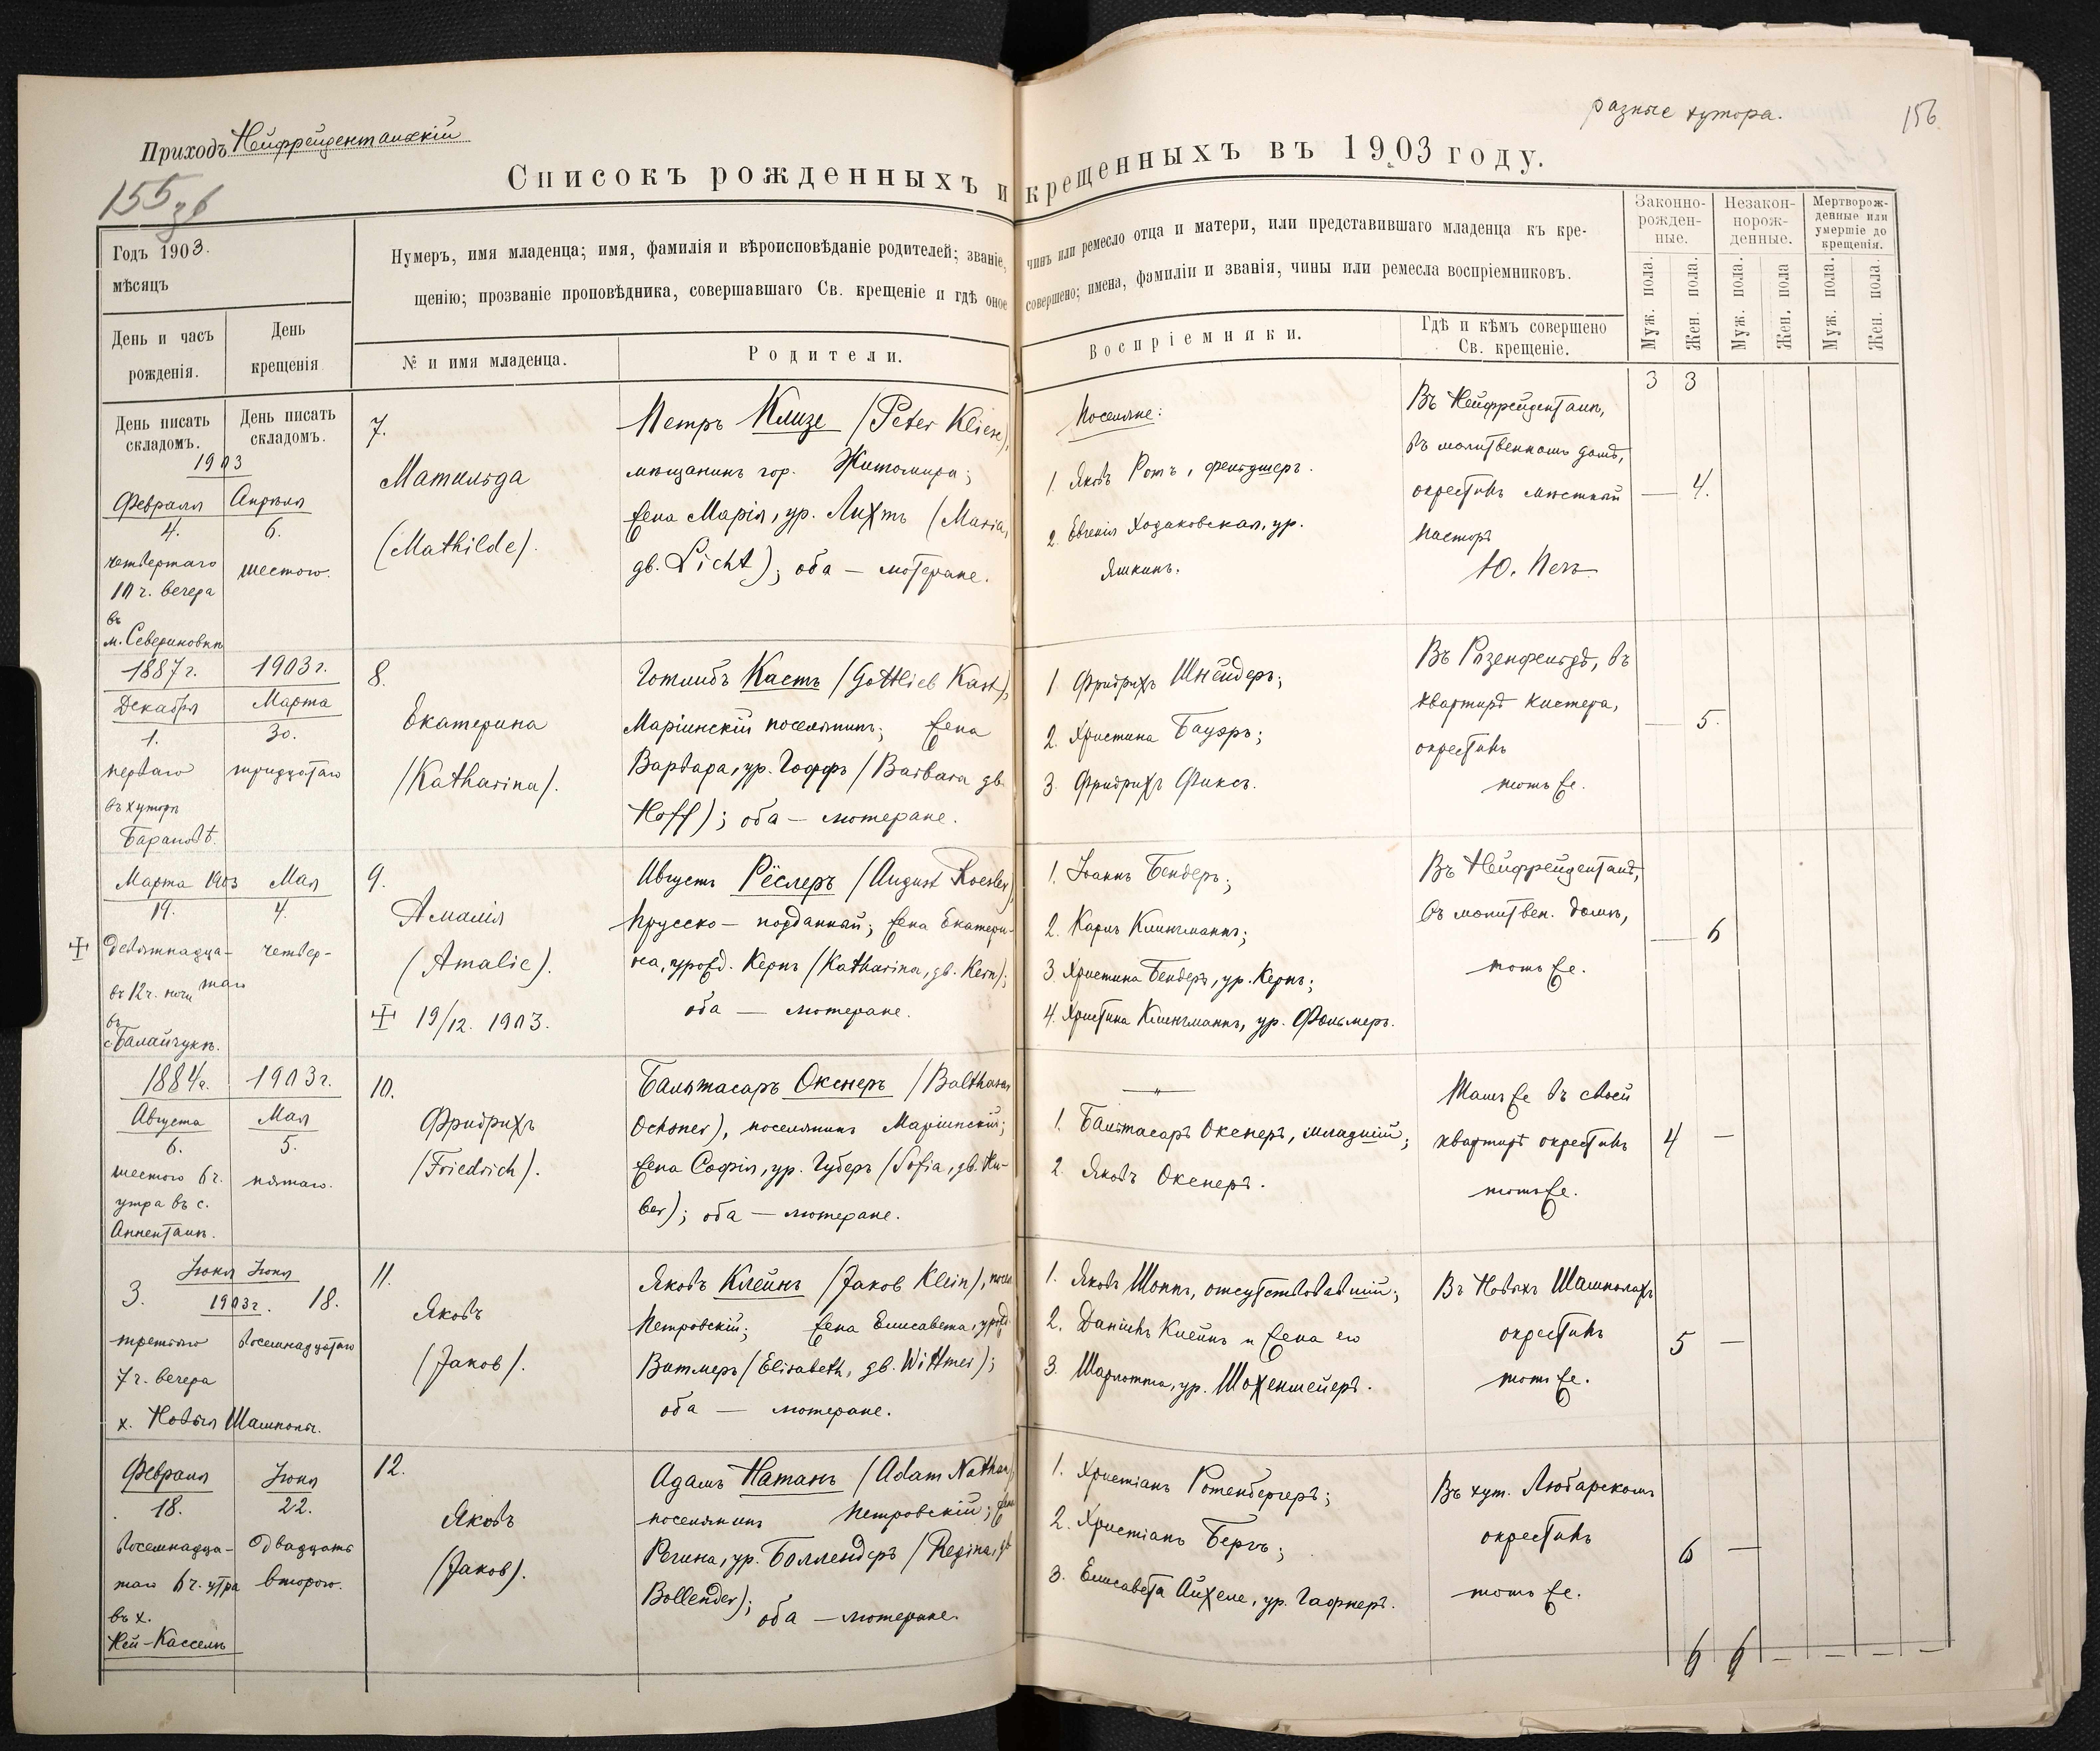 разные хутора.
156
Приходъ Нейфрейдентальскій
155 зв
Списокъ рожденныхъ и крещенныхъ въ 1903 году.
Годъ 1903.
мѣсяцъ
День и часъ
рожденія.
День
крещенія
Нумеръ, имя младенца; имя, фамилія и вѣроисповѣданіе родителей; званіе, чинъ или ремесло отца и матери, или представившаго младенца къ кре-
щенію; прозваніе проповѣдника, совершавшаго Св. крещеніе и гдѣ оное совершено; имена, фамиліи и званія, чины или ремесла воспріемниковъ.
№ и имя младенца.
Родители.
Воспріемники.
Гдѣ и кѣмъ совершено
Св. крещеніе.
Законно-
рожден-
ные.
Незакон-
норож-
денные.
Мертворож-
денные или
умершіе до
крещенія.
Муж. пола.
Жен. пола.
Муж. пола.
Жен. пола
Муж. пола.
Жен. пола.
День писать
складомъ.
День писать
складомъ.
3 3
1903
Февраля
4.
четвертаго
10 ч. вечера
въ
м. Севериновкѣ
Апрѣля
6.
шестого.
7.
Матильда
(Mathilde).
Петръ Клизе (Peter Kliese),
мѣщанинъ гор. Житомира;
жена Марія, ур. Лихтъ (Maria,
gb. Licht); оба — лютеране.
Поселяне:
1. Яковъ Ротъ, фельдшеръ.
2. Евгенія Ходаковская, ур.
Яшкинъ.
Въ Нейфрейденталѣ,
въ молитвенномъ домѣ,
окрестилъ мѣстный
пасторъ
Ю. Пецъ
— 4.
1887 г.
Декабря
1.
перваго
въ хуторѣ
Барановѣ.
1903 г.
Марта
30.
тридцатаго
8.
Екатерина
(Katharina).
Готлибъ Кастъ (Gottlieb Kast),
Маріинскій поселянинъ; жена
Варвара, ур. Гоффъ (Barbara gb.
Hoff); оба — лютеране.
1 Фридрихъ Шнейдеръ;
2. Христина Бауэръ;
3. Фридрихъ Фиксъ.
Въ Розенфельдѣ, въ
квартирѣ кистера,
окрестилъ
тотъ же.
— 5.
Марта 1903
19.
Девятнадца-
таго
въ 12 ч. ночи
въ
с. Балайчукъ.
Мая
4.
четвер-
9.
Амалія
(Amalie).
19/12. 1903.
Августъ Рёслеръ (August Roesler),
прусско-подданный; жена Екатери-
на, урожд. Кернъ (Katharina, gb. Kern);
оба — лютеране.
1. Іоаннъ Бендеръ;
2. Карлъ Клингманнъ;
3. Христина Бендеръ, ур. Кернъ;
4. Христина Клингманнъ, ур. Фольмеръ.
Въ Нейфрейденталѣ,
въ молитвен. домѣ,
тотъ же.
— 6
1884 г.
Августа
6.
шестого 6 ч.
утра въ с.
Анненталѣ.
1903 г.
Мая
5.
пятаго.
10.
Фридрихъ
(Friedrich).
Бальтасаръ Окснеръ (Balthasar
Ochsner), поселянинъ Маріинскій;
жена Софія, ур. Губеръ (Sofia, gb. Hu-
ber); оба — лютеране.
— „ —
1. Бальтасаръ Окснеръ, младшій;
2. Яковъ Окснеръ.
Тамъ же въ своей
квартирѣ окрестилъ
тотъ же.
4 —
Іюня Іюня
3. 1903 г. 18.
третьяго
7 ч. вечера
х. Новыя Шамполы.
Восемнадцатаго
11.
Яковъ
(Jakob).
Яковъ Клейнъ (Jakob Klein), посел.
Петровскій; жена Елисавета, урожд.
Витмеръ (Elisabeth, gb. Wittmer);
оба — лютеране.
1. Яковъ Шоппъ, отсутствовавшій;
2. Даніилъ Клейнъ и жена его
3. Шарлотта, ур. Шохенмейеръ.
Въ Новыхъ Шамполахъ
окрестилъ
тотъ же.
5 —
Февраля
18.
Восемнадца-
таго 6 ч. утра
въ х.
Ней-Кассель
Іюня
22.
Двадцать
второго.
12.
Яковъ
(Jakob).
Адамъ Натанъ (Adam Nathan),
поселянинъ Петровскій; жена
Регина, ур. Боллендеръ (Regina, gb
Bollender); оба — лютеране.
1. Христіанъ Ротенбергеръ;
2. Христіанъ Бергъ;
3. Елисавета Айхеле, ур. Гафнеръ.
Въ хут. Любарскомъ
окрестилъ
тотъ же.
6 —
6 6 — — — —